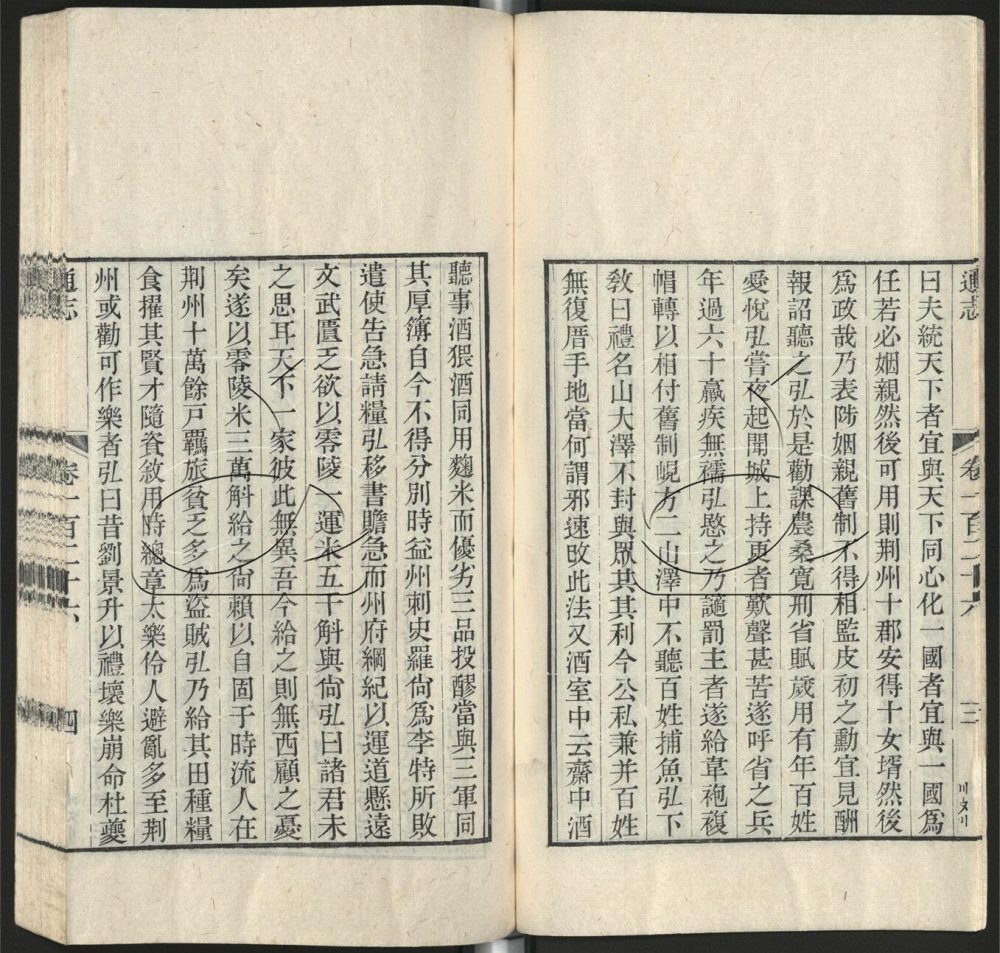 通志
卷一百二十六
三
曰夫統天下者宜與天下同心化一國者宜與一國爲
任若必姻親然後可用則荆州十郡安得十女壻然後
爲政哉乃表陟姻親舊制不得相監皮初之勳宜見酬
報詔聽之弘於是勸課農桑寛刑省賦歲用有年百姓
愛悅弘嘗夜起聞城上持更者歎聲甚苦遂呼省之兵
年過六十羸疾無襦弘愍之乃讁罰主者遂給韋袍複
帽轉以相付舊制峴方二山澤中不聽百姓捕魚弘下
敎曰禮名山大澤不封與眾共其利今公私兼并百姓
無復厝手地當何謂邪速改此法又酒室中云齋中酒
聽事酒猥酒同用麴米而優劣三品投醪當與三軍同
其厚簿自今不得分別時益州刺史羅尙爲李特所敗
遣使告急請糧弘移書贍急而州府綱紀以運道懸遠
文武匱乏欲以零陵一運米五千斛與尙弘曰諸君未
之思耳天下一家彼此無異吾今給之則無西顧之憂
矣遂以零陵米三萬斛給之尙賴以自固于時流人在
荆州十萬餘戸羈旅貧乏多爲盜賊弘乃給其田種糧
食擢其賢才隨資敘用時總章太樂伶人避亂多至荆
州或勸可作樂者弘曰昔劉景升以禮壞樂崩命杜夔
通志
卷一百二十六
四